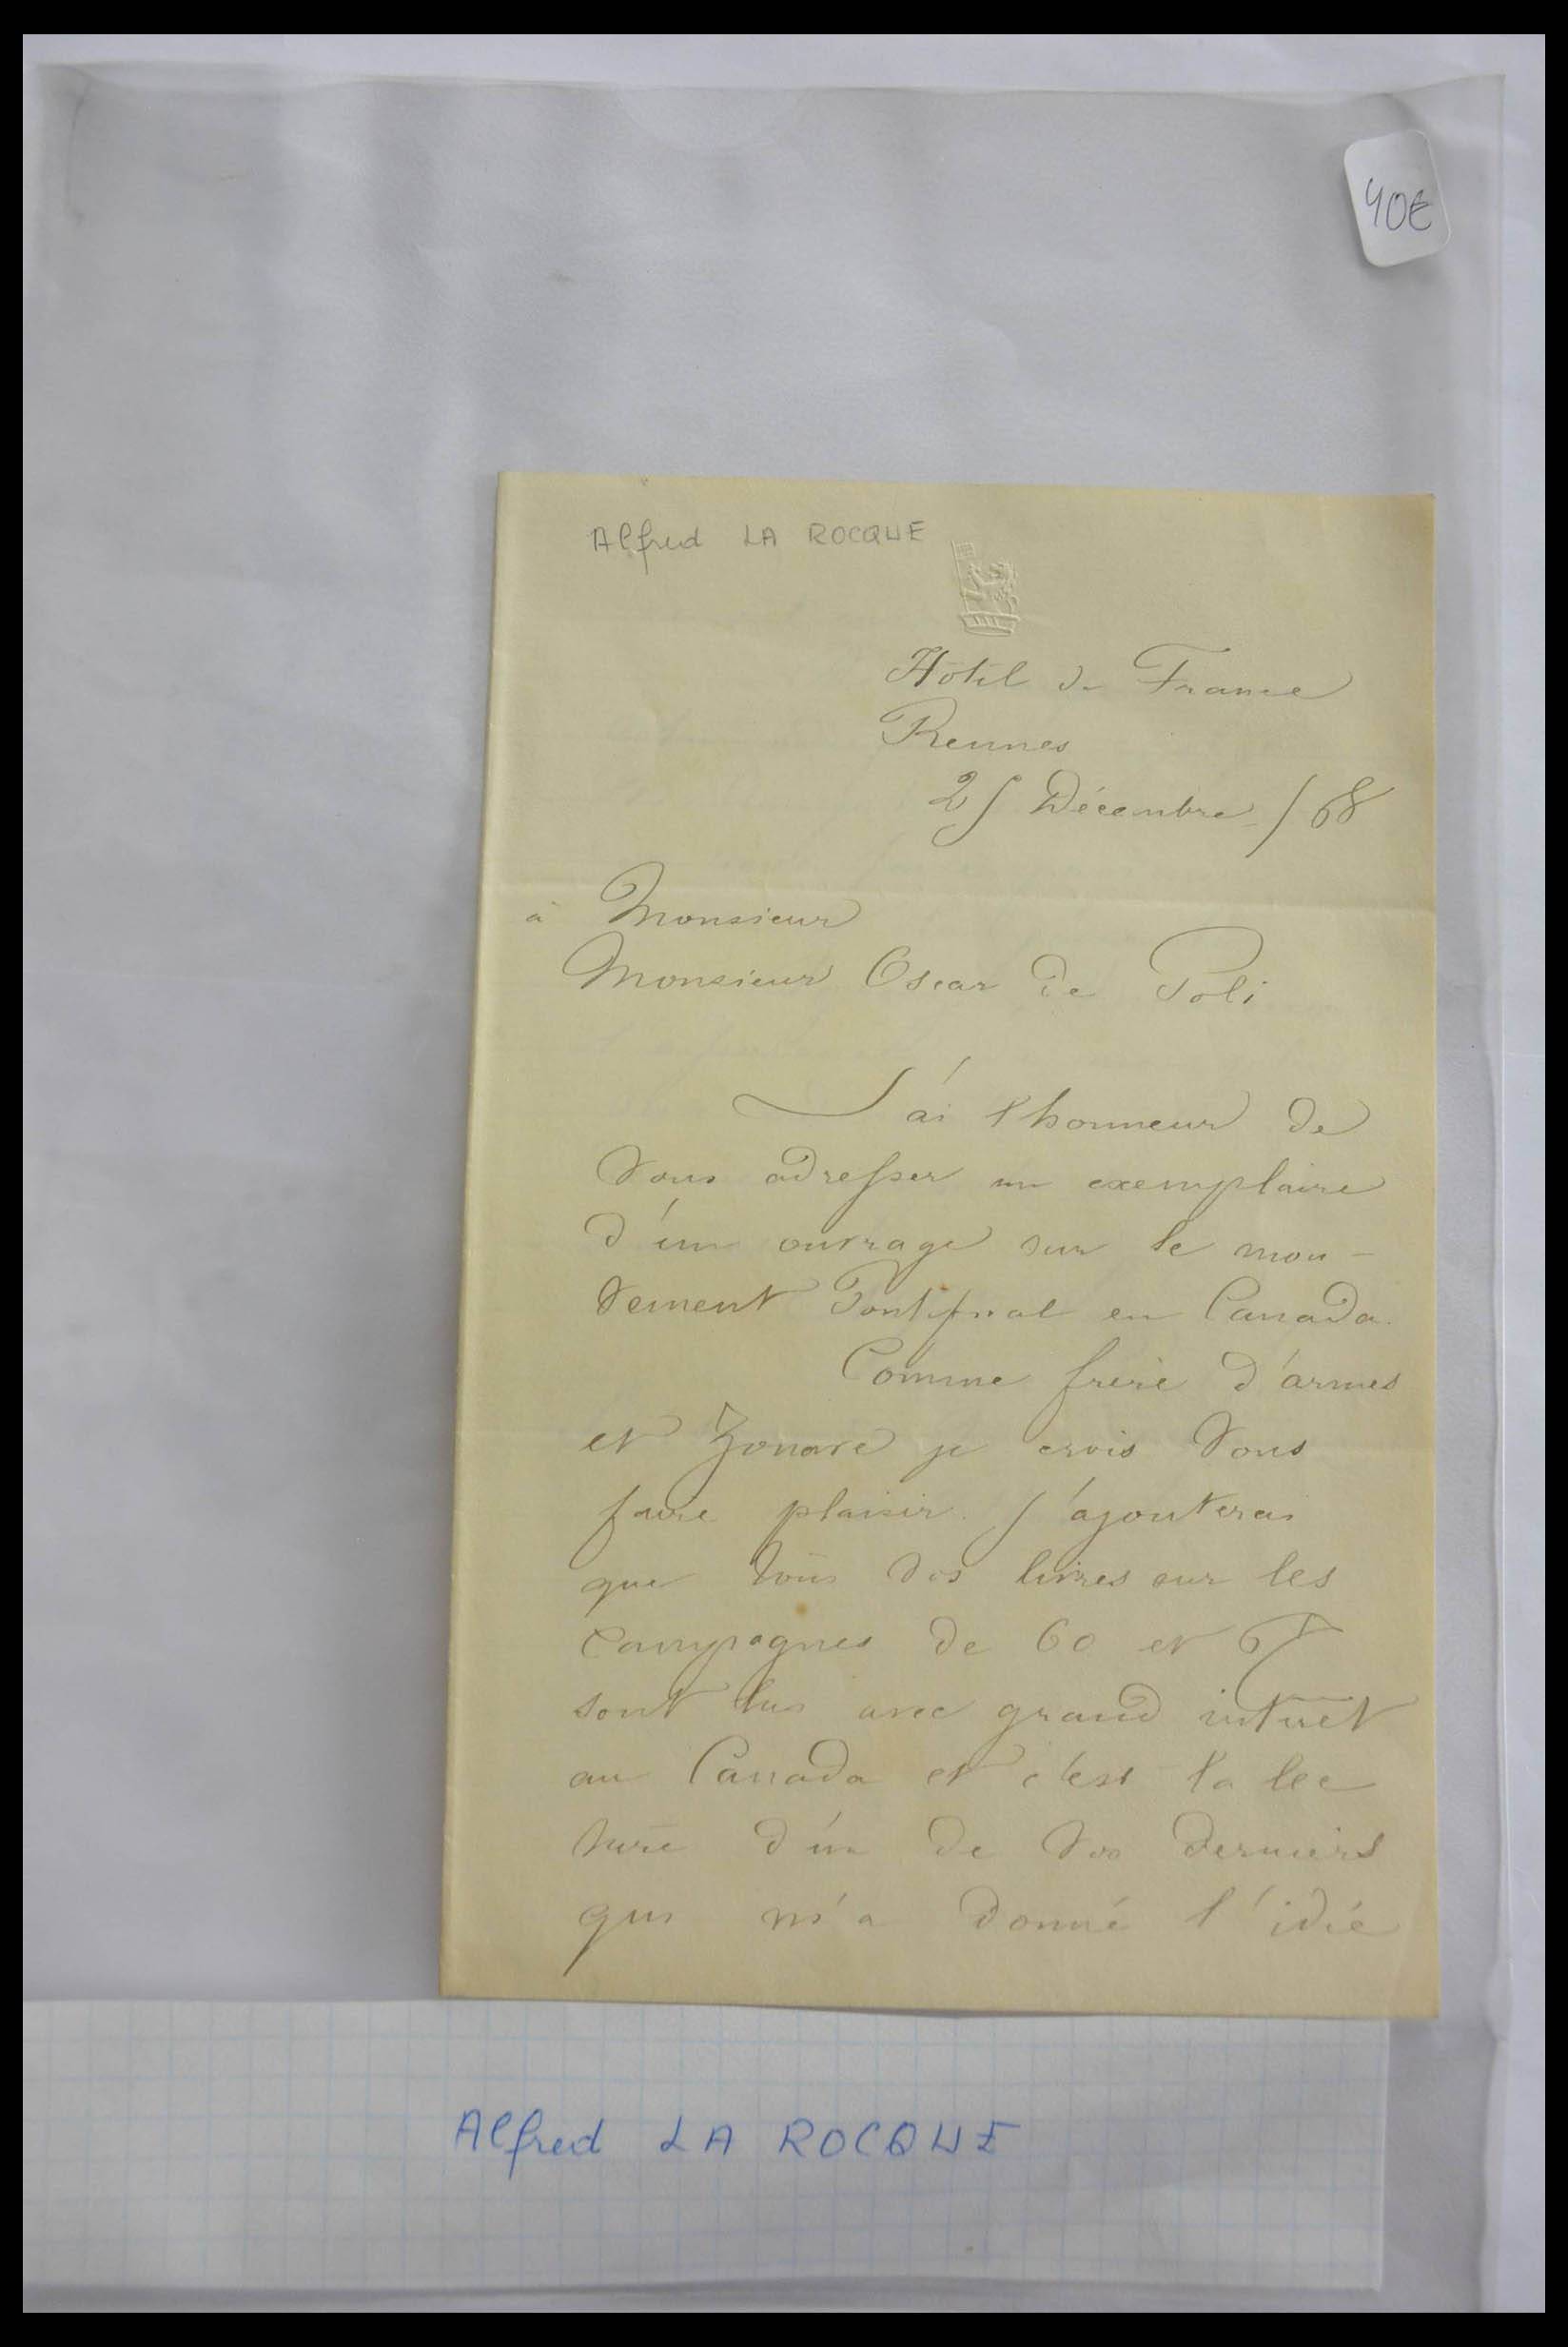 40€
Alfred LA ROCQUE
Hôtel de France
Rennes
25 Décembre /68
à Monsieur
Monsieur Oscar de Poli
J'ai l'honneur de
Vous adresser un exemplaire
d'un ouvrage sur le mou-
vement Pontifical en Canada.
Comme frère d'armes
et Zouave je crois Vous
faire plaisir. J'ajouterai
que tous vos livres sur les
Campagnes de 60 et 67
sont lus avec grand intérêt
au Canada et c'est la lec
ture d'un de Vos derniers
qui m'a donné l'idée
Alfred LA ROCQUE